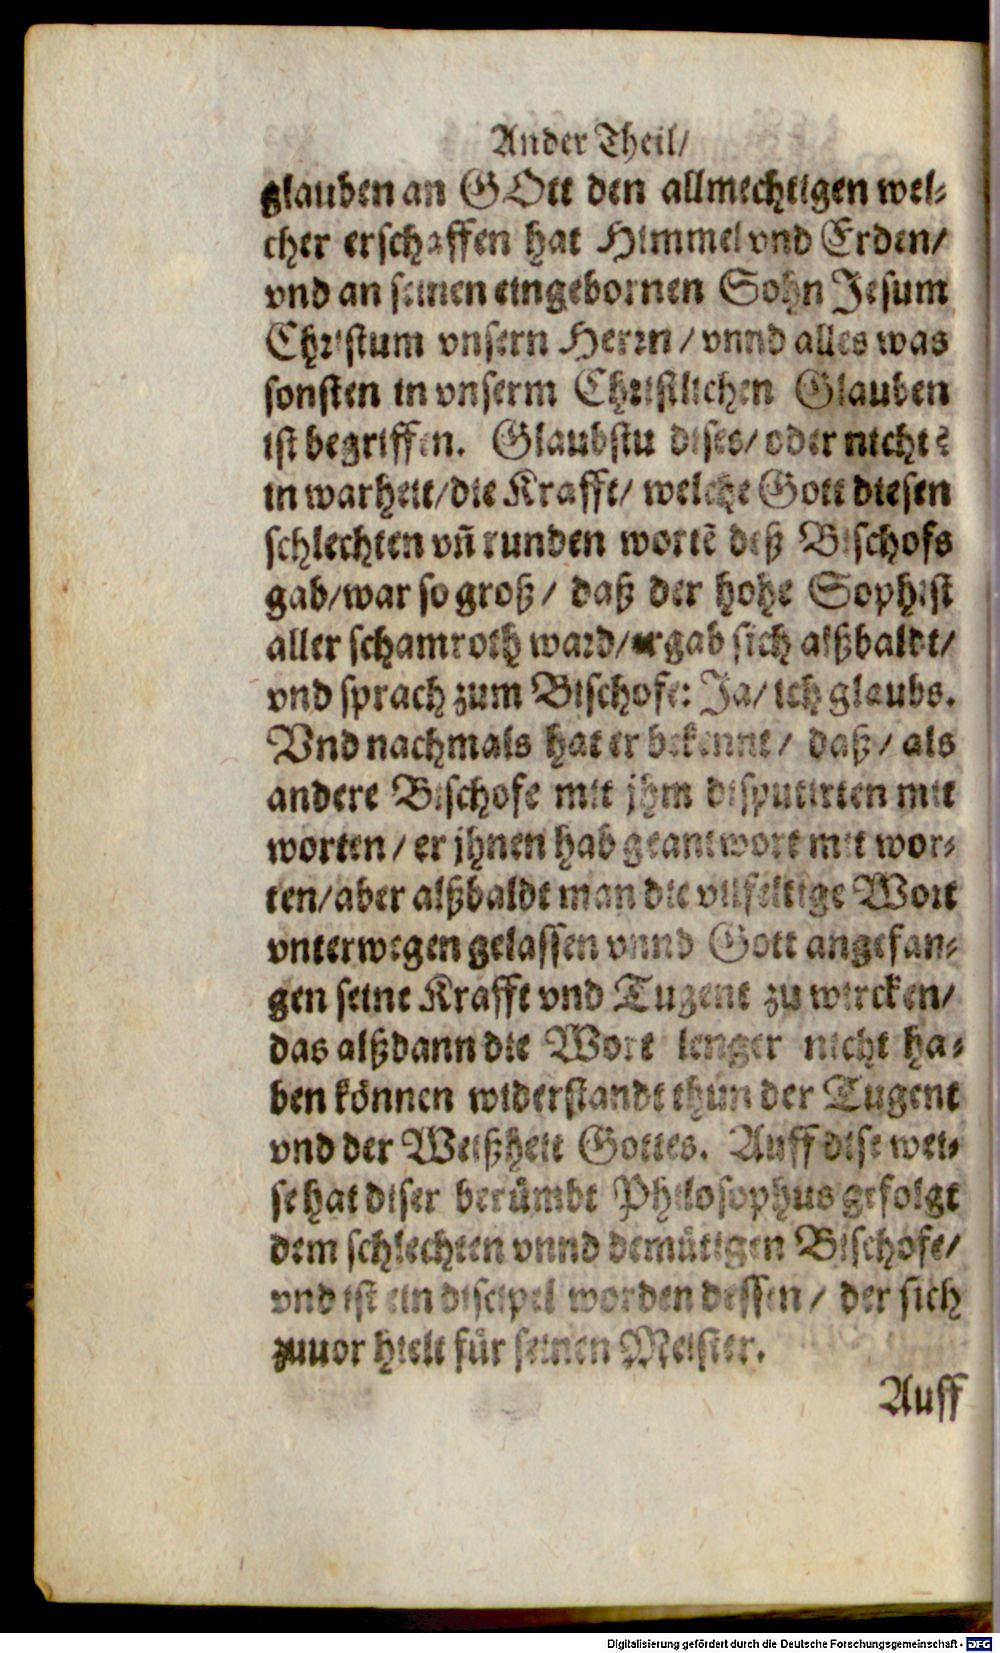 Ander Theil/
glauben an GOtt den allmechtigen wel⸗
cher erschaffen hat Himmel vnd Erden/
vnd an seinen eingebornen Sohn Jesum
Christum vnsern Herrn / vnnd alles was
sonsten in vnserm Christlichen Glauben
ist begriffen. Glaubstu dises/ oder nicht?
in warheit/die Krafft/ welche Gott diesen
schlechten vñ runden wortē deß Bischofs
gab/war so groß/ daß der hohe Sophist
aller schamroth ward/ergab sich alßbaldt/
vnd sprach zum Bischofe: Ja/ ich glaubs.
Vnd nachmals hat er bekennt/ daß/ als
andere Bischofe mit jhm disputirten mit
worten / er jhnen hab geantwort mit wor⸗
ten/aber alßbaldt man die vilfeltige Wort
vnterwegen gelassen vnnd Gott angefan⸗
gen seine Krafft vnd Tugent zu wircken/
das alßdann die Wort lenger nicht ha⸗
ben können widerstandt thun der Tugent
vnd der Weißheit Gottes. Auff dise wei⸗
se hat diser berümbt Philosophus gefolgt
dem schlechten vnnd demütigen Bischofe/
vnd ist ein discipel worden dessen / der sich
zuuor hielt für seinen Meister.
Auff
Digitalisierung gefördert durch die Deutsche Forschungsgemeinschaft - DFG